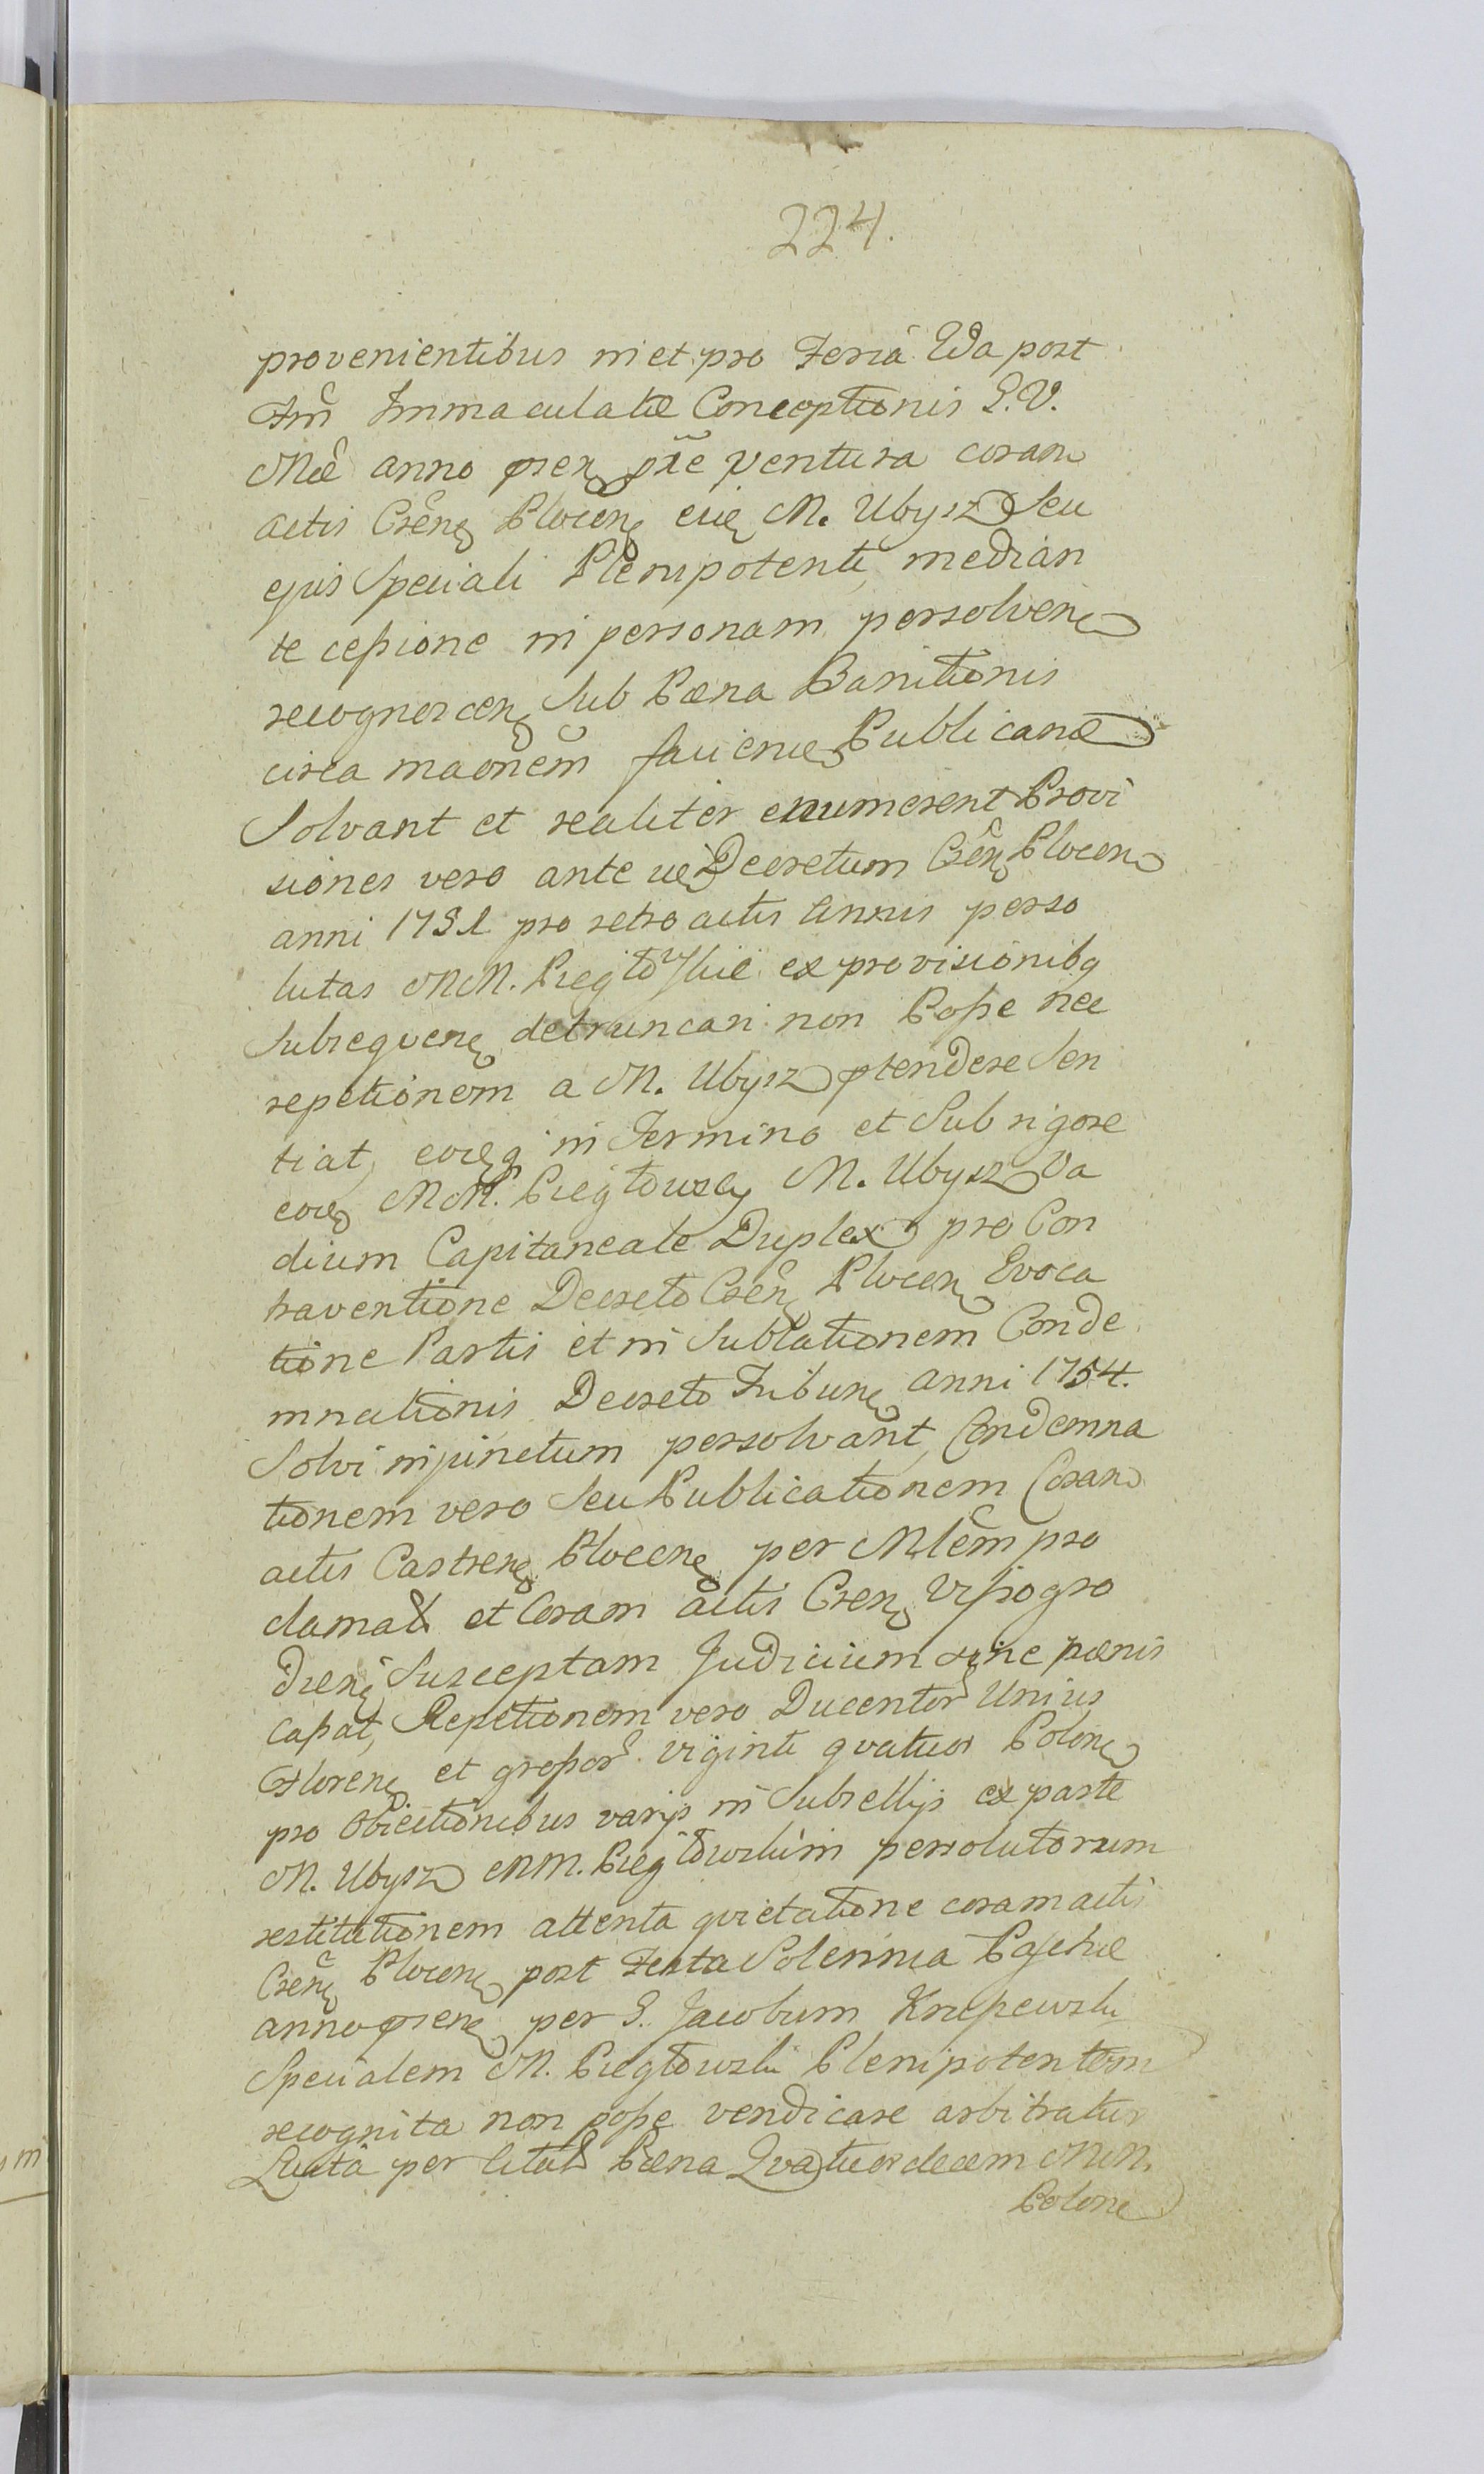 224.
provenientibus in et pro Feria IIda post
Fm̃ Immaculatæ Conceptionis B.V.
Mæ anno præn pñe ventura coram
actis Csẽn Plocen eid M. Ubysz Seu
ejus Speciali Plenipotenti, median
te cessione in personam persolven
recognoscen Sub Pæna Banitionis
circa maõnem faciend Publicand
Solvant et realiter enumerent Provi
siones vero ante id Decretum Csẽn Plocen
anni 1751 pro retroactis Annis perso
lutas MM. Piegłowskie ex provisionibq
Subsequen detruncari non Posse nec
repetitionem a M. Ubysz ptendere Sen
tiat, eodq in Termino et Sub rigore
eod MM. Piegłowscy M. Ubysz Va
dium Capitaneale Duplex pro Con
traventione Decreto Csẽn Plocen Evoca
tione Partis et in Sublationem Conde
mnationis Decreto Tribun anni 1754.
Solvi injunctum persolvant, Condemna
tionem vero Seu Publicationem Coram
actis Castren Plocen per Mlem̃ pro
clamat et Coram actis Csen Vissogro
dien Susceptam Judicium sine pænis
cassat, Repetitionem vero Ducentor Unius
Floren et grossor viginti qvatuor Polon
pro Obiectionibus varijs in Subsellijs ex parte
M. Ubysz MM. Piegłowskim persolutorum
restitutionem attenta qvietatione coram actis
Csẽn Plocen post Festa Solennia Paschæ
anno præn per G. Jacobum Krzepewski
Specialem M. Piegłowski Plenipotentem
recognita non posse vendicare arbitratur
Luita per citat Pæna Qvatuordecem MM.
Polone